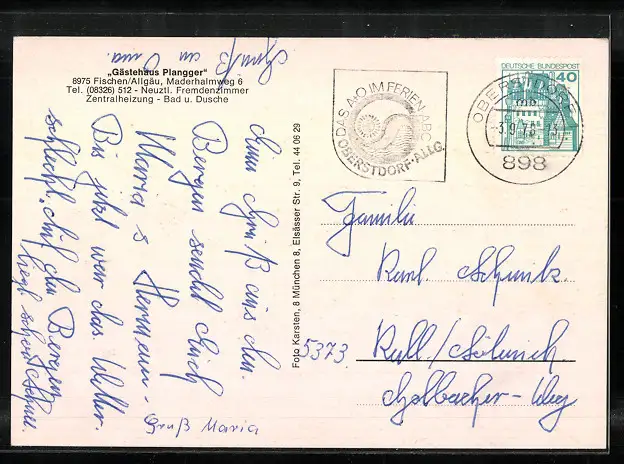 „Gästehaus Plangger"
8975 Fischen/Allgäu, Maderhalmweg 6
Tel. (08326) 512 - Neuztl. Fremdenzimmer
Zentralheizung - Bad u. Dusche
Gruß an Oma.
Einen Gruß aus den
Bergen sendet Euch
Maria & Hermann-
Bis jetzt war das Wetter
schlecht. Auf den Bergen
liegt schon Schnee.
Gruß Maria
Foto Karsten, 8 München 8, Elsässer Str. 9, Tel. 44 06 29
DAS A·O IM FERIEN-ABC
OBERSTDORF·ALLG.
DEUTSCHE BUNDESPOST
40
OBERSTDORF
898
Familie
Karl Schmitz.
5373 Kall/